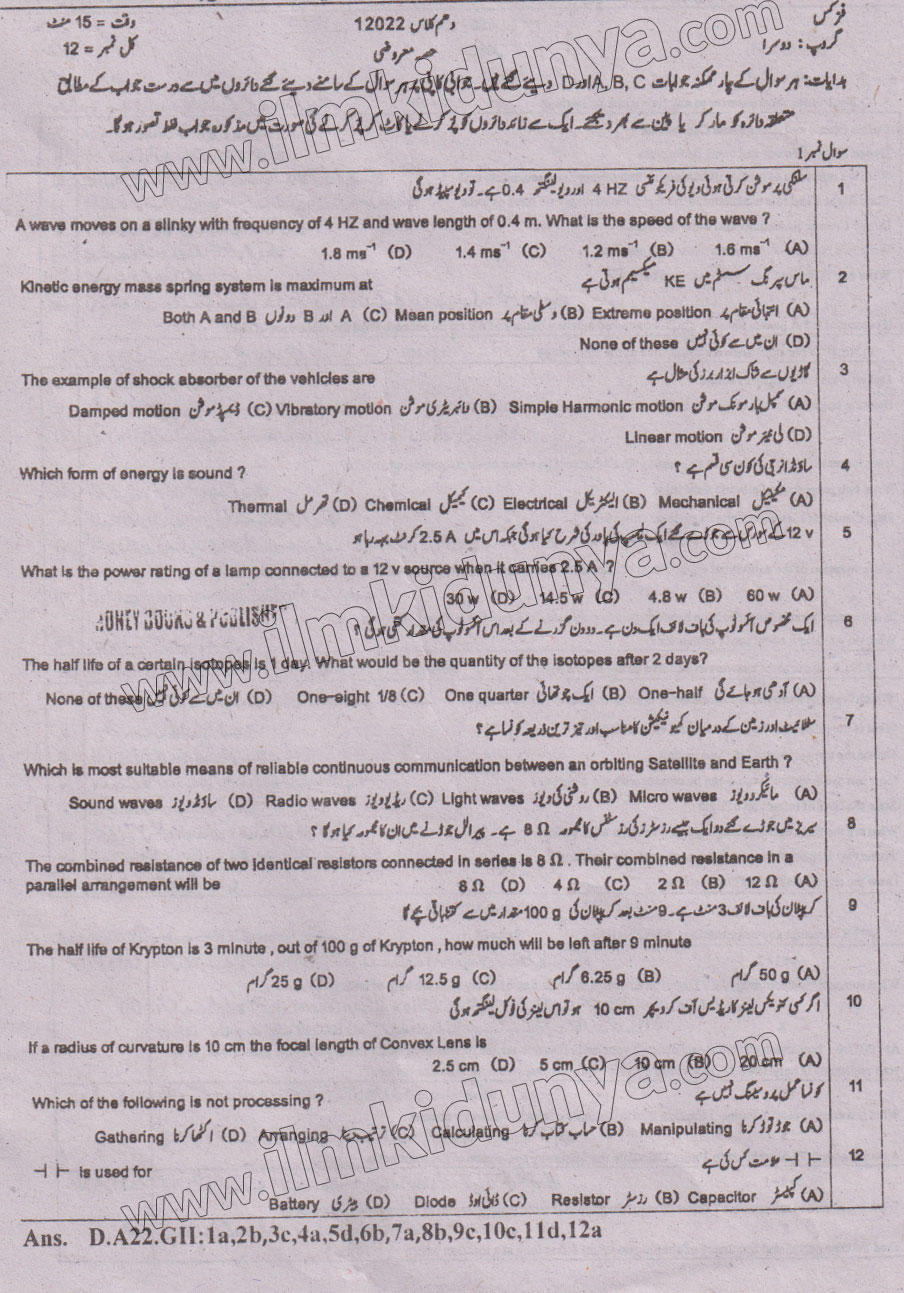 فزکس
دہم کلاس 12022
وقت = 15 منٹ
گروپ : دوسرا
حصہ معروضی
کل نمبر = 12
ہدایات: ہر سوال کے چار ممکنہ جوابات A, B, C اور D دیئے گئے ہیں۔ جوابی کاپی پر ہر سوال کے سامنے دیئے گئے دائروں میں سے درست جواب کے مطابق
متعلقہ دائرہ کو مارکر یا پین سے بھر دیجئے۔ ایک سے زائد دائروں کو پُر کرنے یا کاٹ کر پُر کرنے کی صورت میں مذکورہ جواب غلط تصور ہوگا۔
سوال نمبر 1
1 سلنکی پر موشن کرتی ہوئی ویو کی فریکوئنسی 4 HZ اور ویولینگتھ 0.4 ہے۔ تو ویو سپیڈ ہوگی
A wave moves on a slinky with frequency of 4 HZ and wave length of 0.4 m. What is the speed of the wave ?
(A) 1.6 ms⁻¹ (B) 1.2 ms⁻¹ (C) 1.4 ms⁻¹ (D) 1.8 ms⁻¹
2 ماس سپرنگ سسٹم میں KE میکسیمم ہوتی ہے Kinetic energy mass spring system is maximum at
(A) انتہائی مقام پر Extreme position (B) وسطی مقام پر Mean position (C) A اور B دونوں Both A and B
(D) ان میں سے کوئی نہیں None of these
3 گاڑیوں کے شاک ابزاربرز کی مثال ہے The example of shock absorber of the vehicles are
(A) سمپل ہارمونک موشن Simple Harmonic motion (B) وائبریٹری موشن Vibratory motion (C) ڈیمپڈ موشن Damped motion
(D) لی نیئر موشن Linear motion
4 ساؤنڈ انرجی کی کون سی قسم ہے ؟ Which form of energy is sound ?
(A) مکینیکل Mechanical (B) الیکٹریکل Electrical (C) کیمیکل Chemical (D) تھرمل Thermal
5 12 v کے سورس سے جوڑے گئے ایک لیمپ کی پاور کی شرح کیا ہوگی جبکہ اس میں 2.5 A کرنٹ بہہ رہا ہو
What is the power rating of a lamp connected to a 12 v source when it carries 2.5 A ?
(A) 60 w (B) 4.8 w (C) 14.5 w (D) 30 w
HONEY BOOKS & PUBLISHER
6 ایک مخصوص آئسوٹوپ کی ہاف لائف ایک دن ہے۔ دو دن گزرنے کے بعد اس آئسوٹوپ کی مقدار کتنی ہوگی ؟
The half life of a certain isotopes is 1 day. What would be the quantity of the isotopes after 2 days?
(A) آدھی ہو جائے گی One-half (B) ایک چوتھائی One quarter (C) One-eight 1/8 (D) ان میں سے کوئی نہیں None of these
7 سٹیلائیٹ اور زمین کے درمیان کمیونیکیشن کا مناسب اور تیز ترین ذریعہ کونسا ہے؟
Which is most suitable means of reliable continuous communication between an orbiting Satellite and Earth ?
(A) مائیکرو ویوز Micro waves (B) روشنی کی ویوز Light waves (C) ریڈیو ویوز Radio waves (D) ساؤنڈ ویوز Sound waves
8 سیریز میں جوڑے گئے دو ایک جیسے رزسٹرز کی رزسٹنس کا مجموعہ 8 Ω ہے۔ پیرالل جوڑنے میں ان کا مجموعہ کیا ہوگا ؟
The combined resistance of two identical resistors connected in series is 8 Ω . Their combined resistance in a
parallel arrangement will be (A) 12 Ω (B) 2 Ω (C) 4 Ω (D) 8 Ω
9 کرپٹان کی ہاف لائف 3 منٹ ہے۔ 9 منٹ بعد کرپٹان کی 100 g مقدار میں سے کتنا باقی بچے گا
The half life of Krypton is 3 minute , out of 100 g of Krypton , how much will be left after 9 minute
(A) 50 g گرام (B) 6.25 g گرام (C) 12.5 g گرام (D) 25 g گرام
10 اگر کسی کنویکس لینز کا ریڈیس آف کرویچر 10 cm ہو تو اس لینز کی فوکل لینگتھ ہوگی
If a radius of curvature is 10 cm the focal length of Convex Lens is
(A) 20 cm (B) 10 cm (C) 5 cm (D) 2.5 cm
11 کونسا عمل پروسیسنگ نہیں ہے
Which of the following is not processing ?
(A) جوڑ توڑ کرنا Manipulating (B) حساب کتاب کرنا Calculating (C) ترتیب دینا Arranging (D) اکٹھا کرنا Gathering
12 ⊣ ⊢ علامت کس کی ہے ⊣ ⊢ is used for
(A) کپیسٹر Capacitor (B) رزسٹر Resistor (C) ڈائی اوڈ Diode (D) بیٹری Battery
Ans. D.A22.GII:1a,2b,3c,4a,5d,6b,7a,8b,9c,10c,11d,12a
www.ilmkidunya.com
www.ilmkidunya.com
www.ilmkidunya.com